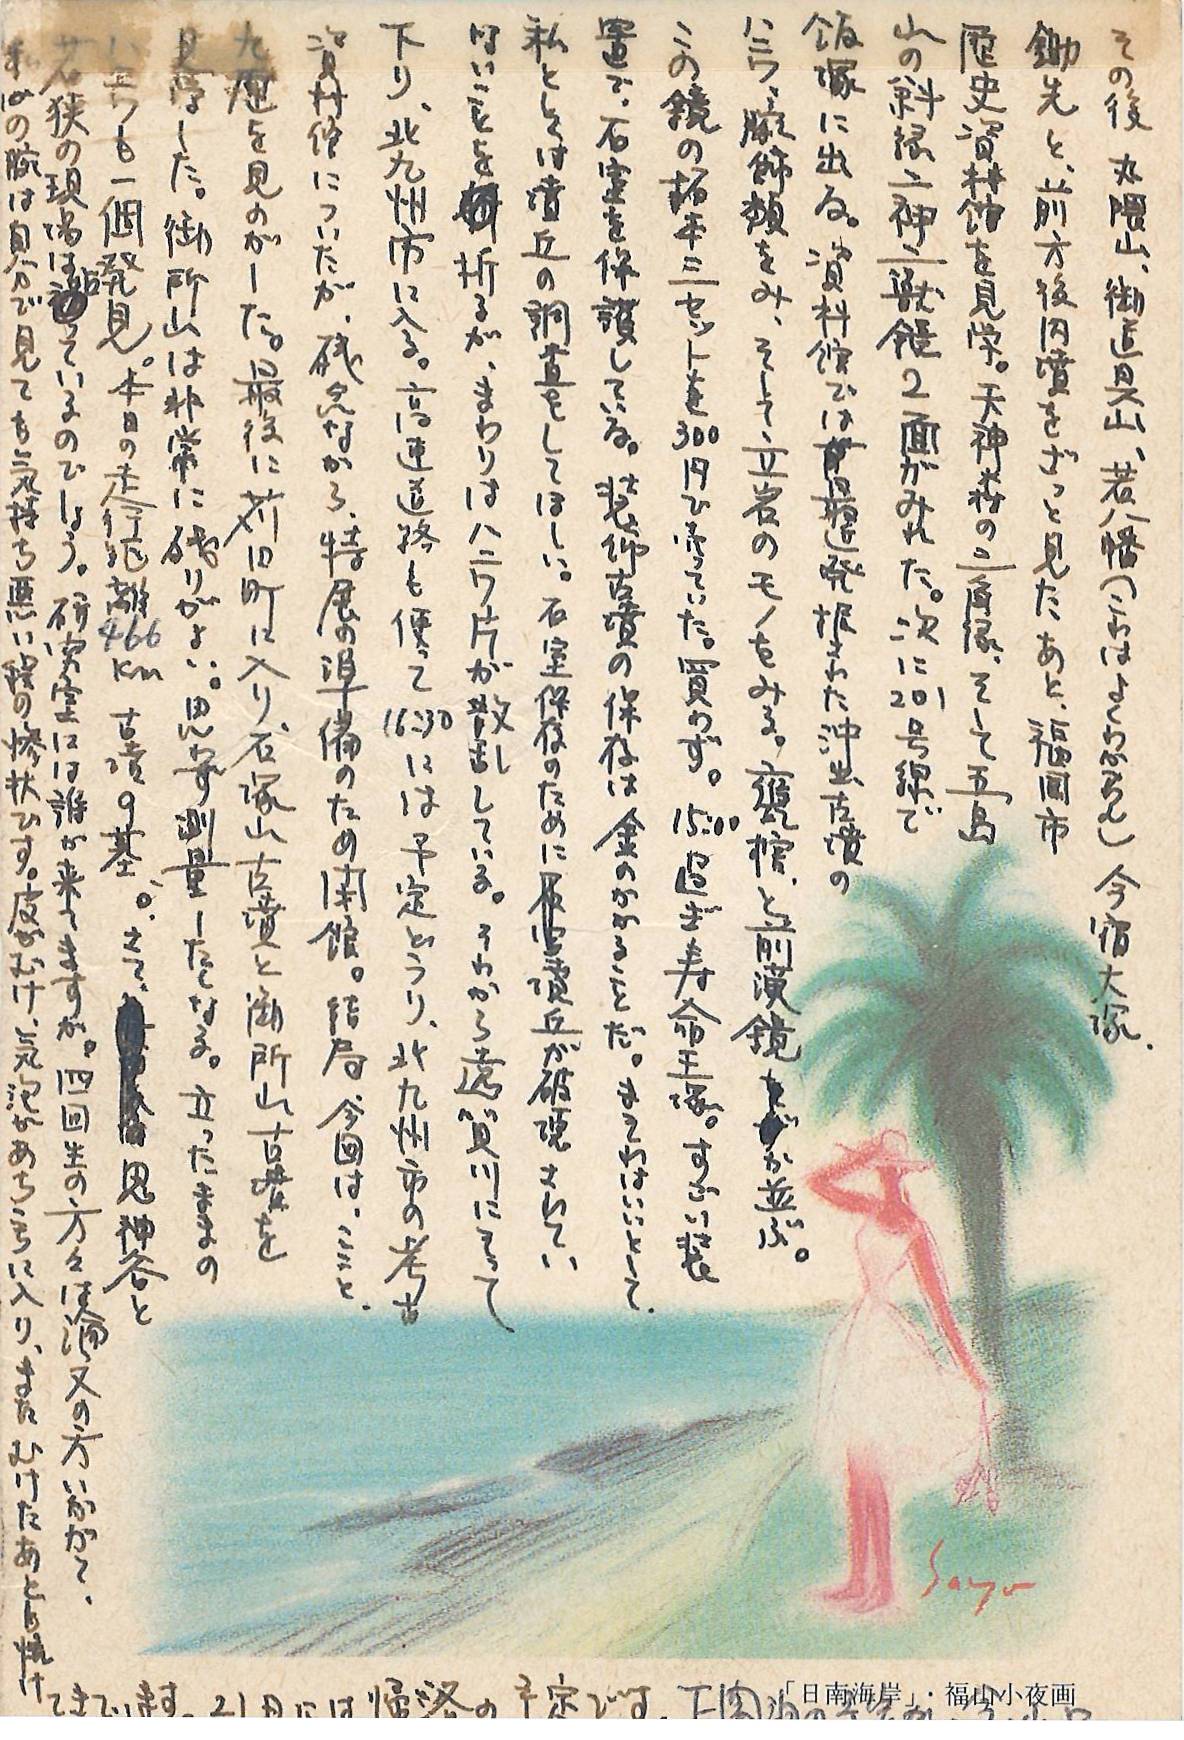 その後 丸隈山、街道具山、若八幡(これはよくわからん) 今宿大塚.
鋤先と、前方後円墳をざっと見たあと、福岡市
歴史資料館を見学。天神森の三角縁、そして五島
山の斜縁二神二獣鏡2面がみれた。次に201号線で
飯塚に出る。資料館では最近発掘された沖出古墳の
ハニワ、腕飾類をみ、そして立岩のモノをみる。甕棺、と前漢鏡が並ぶ。
この鏡の拓本三セットを300円で売っていた。買わず。15:00過ぎ寿命王塚。すごい装
置で、石室を保護している。装飾古墳の保存は金のかかることだ。まあそれはいいとして、
私としては墳丘の調査をしてほしい。石室保存のために版築墳丘が破壊されてい
ないことを祈るが、まわりはハニワ片が散乱している。それから遠賀川にそって
下り、北九州市に入る。高速道路も使って16:30には予定どうり、北九州市の考古
資料館についたが、残念ながら、特展の準備のため閉館。結局、今回は、ことごと
九州を見のがした。最後に苅田町に入り、石塚山古墳と御所山古墳を
見学した。御所山は非常に残りがよい。思わず測量したくなる。立ったままの
ハニワも一個発見。本日の走行距離466km 古墳9基。さて、思神谷と
若狭の現場は詰っているのでしょう。研究室には誰か来てますか。四回生の方々は論文の方いかが、
私の腕は自分で見ても気持ち悪い程の惨状です。皮がむけ、気泡があちこちに入り、またむけたあとも焼け
てきています。21日には帰洛の予定です。
Sayo
「日南海岸」・福山小夜画